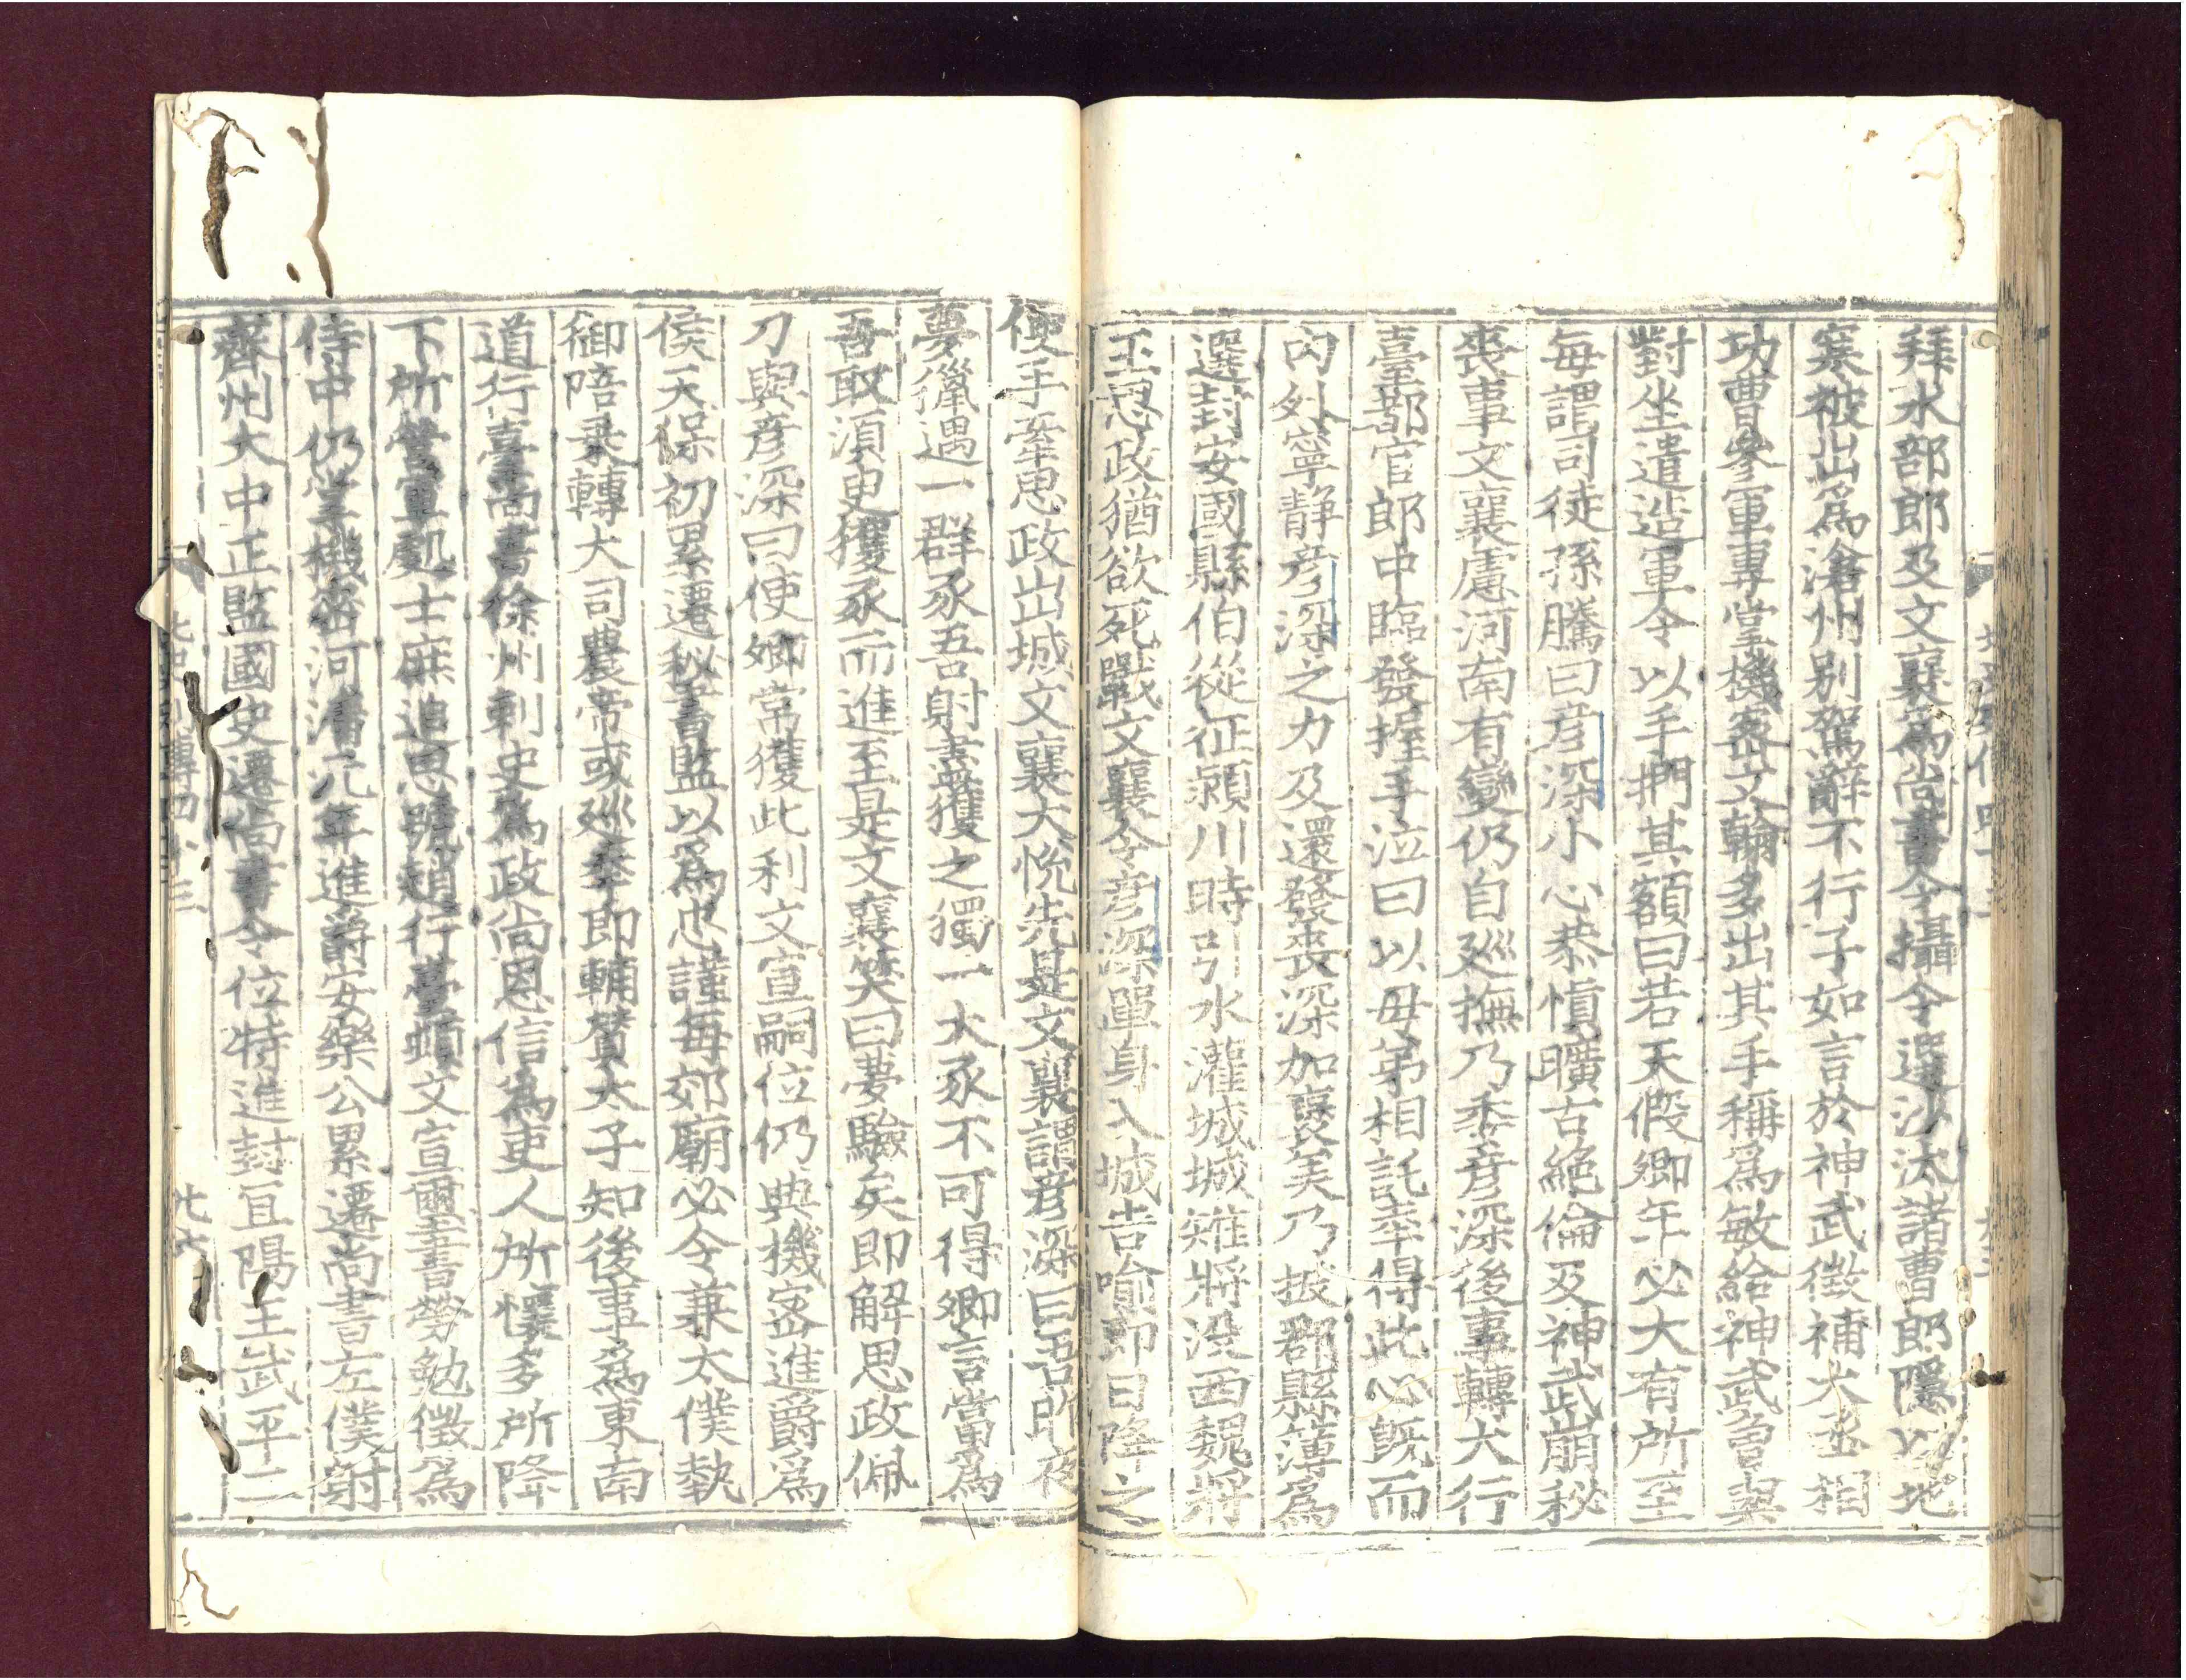 拜水部郎及文襄爲尚書令攝令選沙汰諸曹郎隱以地
寒被出爲滄州别駕辭不行子如言於神武徵補大丞相
功曹參軍專掌機密文翰多出其手稱爲敏給神武曾與
對坐遣造軍令以手捫其額曰若天假卿年必大有所至
每謂司徒孫騰曰彦深小心恭慎曠古絶倫及神武崩秘
喪事文襄慮河南有變仍自廵撫乃委彦深後事轉大行
臺都官郎中臨發握手泣曰以母弟相託幸得此心旣而
内外寧静彦深之力及還發喪深加褒美乃披郡縣簿爲
選封安國縣伯從征潁川時引水灌城城雉將没西魏將
王思政猶欲死戰文襄令彦深單身入城告喻即日降之
便手牽思政出城文襄大悅先是文襄謂彦深曰吾昨夜
夢獵遇一群豕吾射盡獲之獨一大豕不可得卿言當爲
吾取須臾獲豕而進至是文襄笑曰夢驗矣即解思政佩
刀與彦深曰使卿常獲此利文宣嗣位仍典機密進爵爲
侯天保初累遷秘書監以爲忠謹每郊廟必令兼太僕執
御陪乗轉大司農帝或廵幸即輔賛太子知後事爲東南
道行臺尚書徐州刺史爲政尚恩信爲吏人所懷多所降
下所營軍處士庶追思號趙行臺頓文宣璽書勞勉徵爲
侍中仍掌機密河清元年進爵安樂公累遷尚書左僕射
齊州大中正監國史遷尚書令位特進封宜陽王武平二